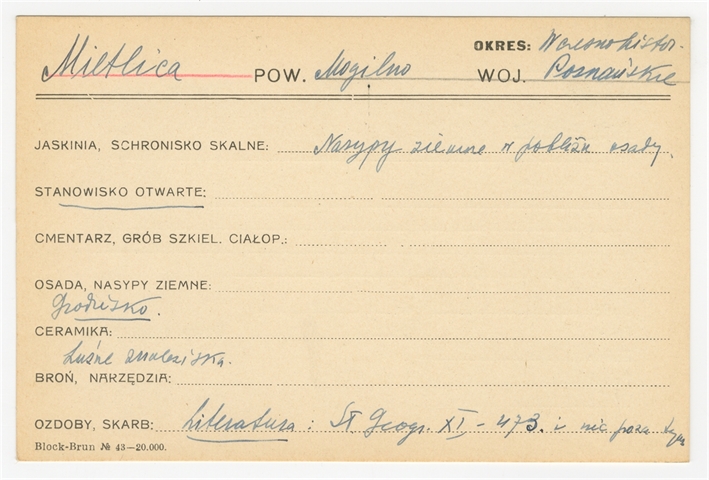 OKRES: Wczesnohistor.
Mietlica POW. Mogilno WOJ. Poznańskie
JASKINIA, SCHRONISKO SKALNE: Nasypy ziemne w pobliżu osady.
STANOWISKO OTWARTE:
CMENTARZ, GRÓB SZKIEL. CIAŁOP.:
OSADA, NASYPY ZIEMNE:
Grodzisko.
CERAMIKA:
Luźne znaleziska.
BROŃ, NARZĘDZIA:
OZDOBY, SKARB: Literatura: Sł. Geogr. XI, - 473. i nic poza tym
Block-Brun № 43—20.000.